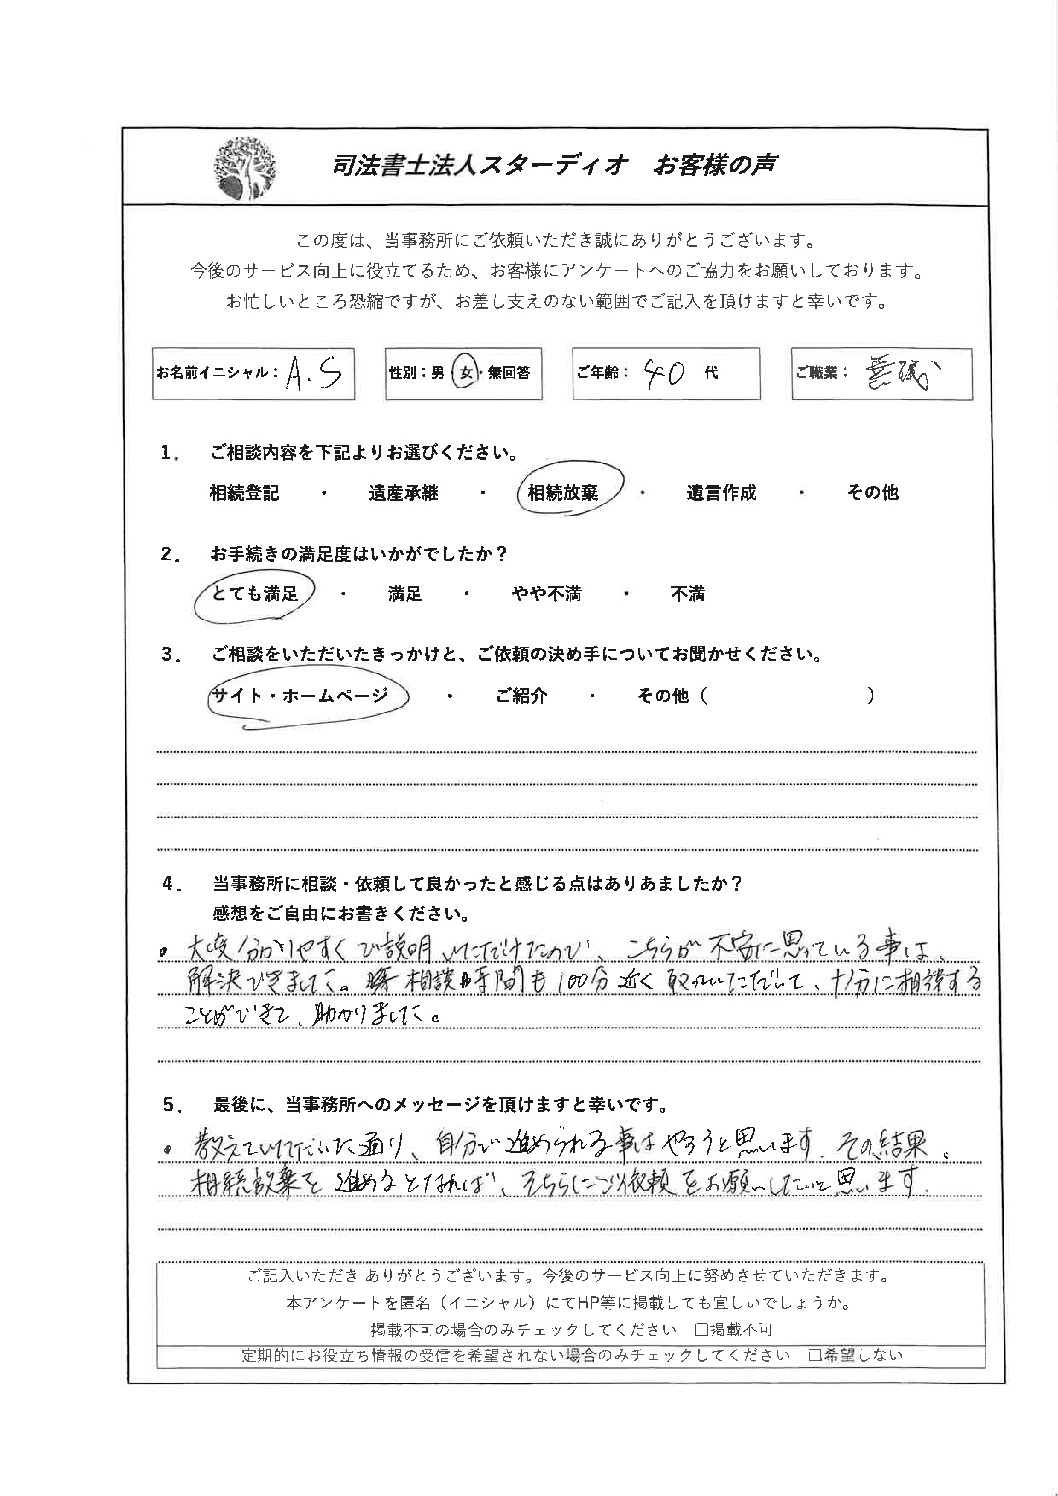 司法書士法人スターディオ　お客様の声
この度は、当事務所にご依頼いただき誠にありがとうございます。
今後のサービス向上に役立てるため、お客様にアンケートへのご協力をお願いしております。
お忙しいところ恐縮ですが、お差し支えのない範囲でご記入を頂けますと幸いです。
お名前イニシャル：A.S　性別：男・女・無回答　ご年齢：40代　ご職業：無職
1.　ご相談内容を下記よりお選びください。
相続登記　・　遺産承継　・　相続放棄　・　遺言作成　・　その他
2.　お手続きの満足度はいかがでしたか？
とても満足　・　満足　・　やや不満　・　不満
3.　ご相談をいただいたきっかけと、ご依頼の決め手についてお聞かせください。
サイト・ホームページ　・　ご紹介　・　その他（　　　　　）
4.　当事務所に相談・依頼して良かったと感じる点はありあましたか？
感想をご自由にお書きください。
・大変分かりやすくご説明いただけたので、こちらが不安に思っている事は、
解決できました。相談時間も100分近く取っていただいて、十分に相談する
ことができて、助かりました。
5.　最後に、当事務所へのメッセージを頂けますと幸いです。
・教えていただいた通り、自分で進められる事はやろうと思います。その結果、
相続放棄を進めるとなれば、そちらにご依頼をお願いしたいと思います。
ご記入いただき ありがとうございます。今後のサービス向上に努めさせていただきます。
本アンケートを匿名（イニシャル）にてHP等に掲載しても宜しいでしょうか。
掲載不可の場合のみチェックしてください　□掲載不可
定期的にお役立ち情報の受信を希望されない場合のみチェックしてください　□希望しない